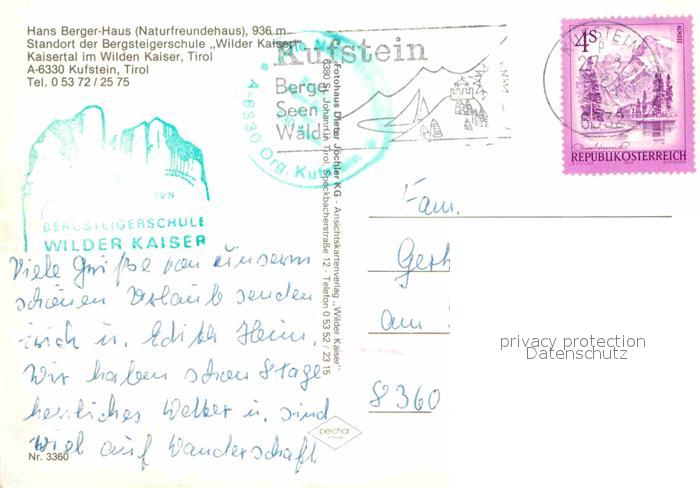 Hans Berger-Haus (Naturfreundehaus), 936 m
Standort der Bergsteigerschule "Wilder Kaiser"
Kaisertal im Wilden Kaiser, Tirol
A-6330 Kufstein, Tirol
Tel. 0 53 72 / 25 75
Kufstein
Berge
Seen
Wälder
A-6330 Org. Kufstein
KUFSTEIN
4 S
REPUBLIK ÖSTERREICH
TVN
BERGSTEIGERSCHULE
WILDER KAISER
Fotohaus Dieter Jöchler KG - Ansichtskartenverlag „Wilder Kaiser"
6380 St. Johann in Tirol, Speckbacherstraße 12 - Telefon 0 53 52 / 23 15
Viele Grüße von unserm
schönen Urlaub senden
Erich u. Edith Heim.
Wir haben schon 8 Tage
herrliches Wetter u. sind
viel auf Wanderschaft.
Nr. 3360
peichar
Fam.
Gerh
am
8360
privacy protection
Datenschutz